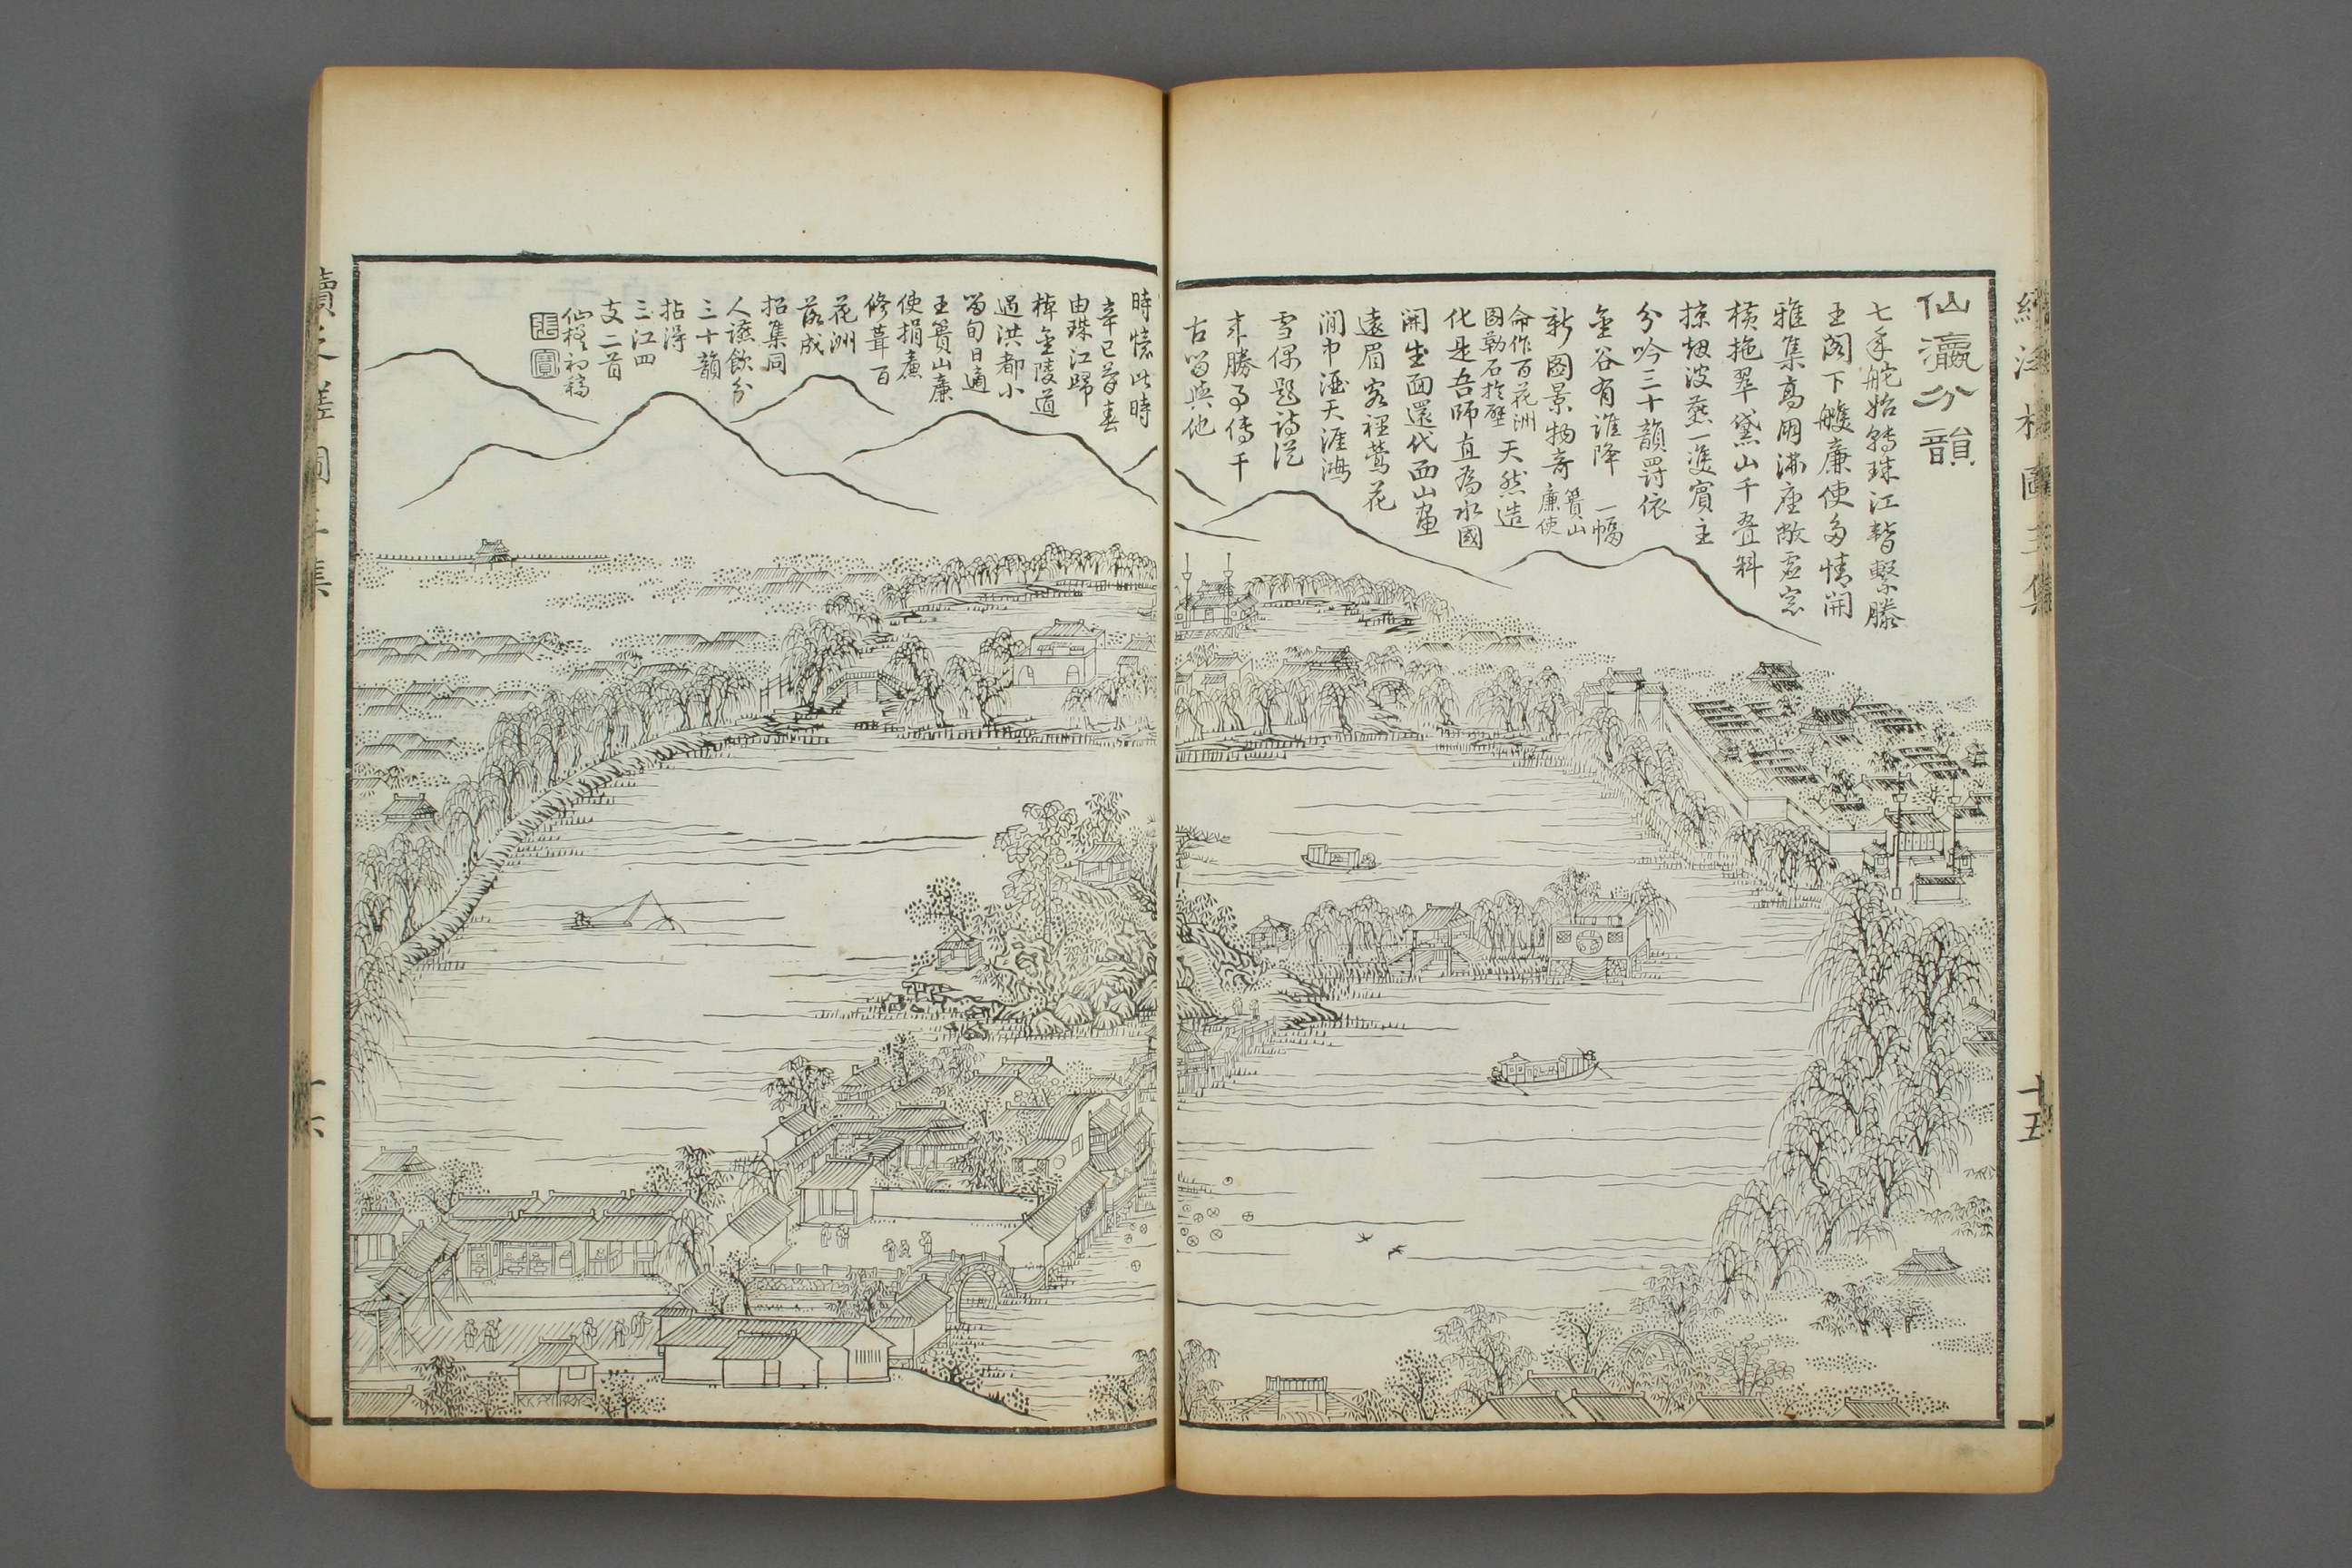 仙瀛分韻
七年舵始轉珠江暫繫滕
王閣下艭廉使多情開
雅集高朋滿座敞虛窓
橫拖翠黛山千疊斜
掠奴波燕一雙賓主
分吟三十韻罸依
金谷有誰降 一幅
新圖景物奇 篔山廉使
命作百花洲圖勒石於壁 天然造
化是吾師直爲水國
開生面還代西山畫
遠眉客裡鶯花
澗中酒天涯鴻
雪偶題詩從
來勝事傳千
古留與他
時憶此時
辛巳暮春
由珠江歸
棹金陵道
過洪都小
留旬日適
王篔山廉
使捐廉
修葺百
花洲
落成
招集同
人讌飲分
三十韻
拈得
三江四
支二首
仙槎初稿
張寶
續泛槎圖三集
十五
續泛槎圖三集
十六